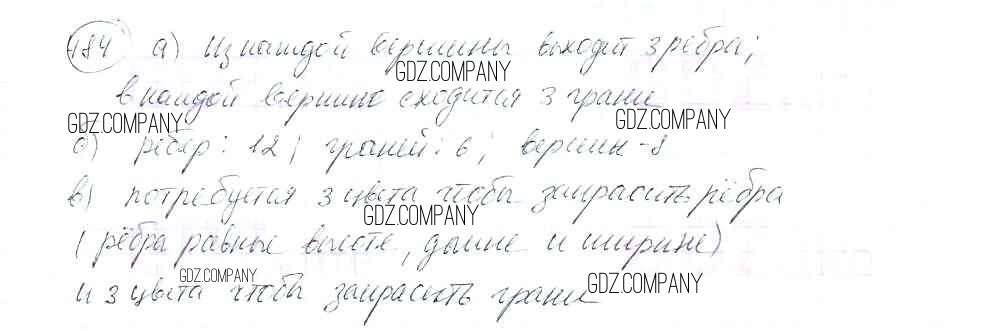 484 а) Из каждой вершины выходит 3 ребра;
GDZ.COMPANY
в каждой вершине сходится 3 грани
GDZ.COMPANY GDZ.COMPANY
б) рёбер: 12; граней: 6; вершин - 8
в) потребуется 3 цвета чтобы закрасить рёбра
GDZ.COMPANY
(рёбра равные высоте, длине и ширине)
GDZ.COMPANY GDZ.COMPANY
и 3 цвета чтобы закрасить грани